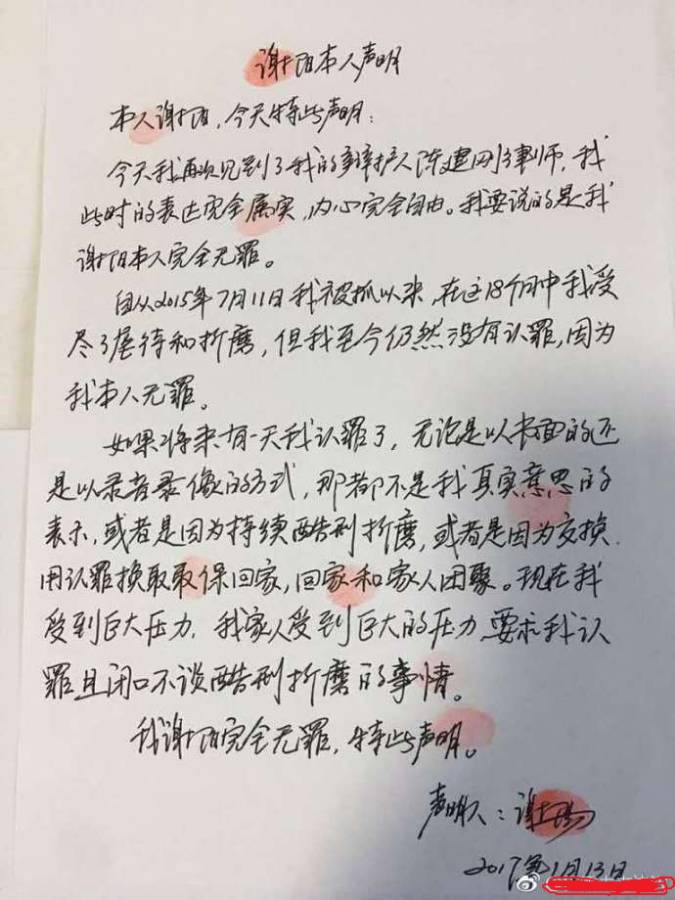 谢阳本人声明
本人谢阳，今天特此声明：
今天我再次见到了我的辩护人陈建刚律师，我
此时的表达完全属实，内心完全自由。我要说的是我
谢阳本人完全无罪。
自从2015年7月11日我被抓以来，在这18个月中我受
尽了虐待和折磨，但我至今仍然没有认罪，因为
我本人无罪。
如果将来有一天我认罪了，无论是以书面的还
是以录音录像的方式，那都不是我真实意思的
表示，或者是因为持续酷刑折磨，或者是因为交换
用认罪换取取保回家，回家和家人团聚。现在我
受到巨大压力，我家人受到巨大的压力，要求我认
罪且闭口不谈酷刑折磨的事情。
我谢阳完全无罪，特此声明。
声明人：谢阳
2017年1月13日